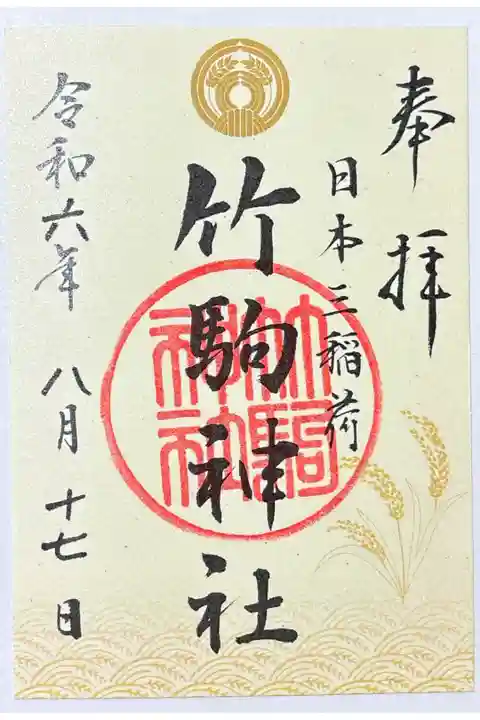 奉拝
日本三稲荷
竹駒神社
竹駒神社
令和六年 八月 十七日